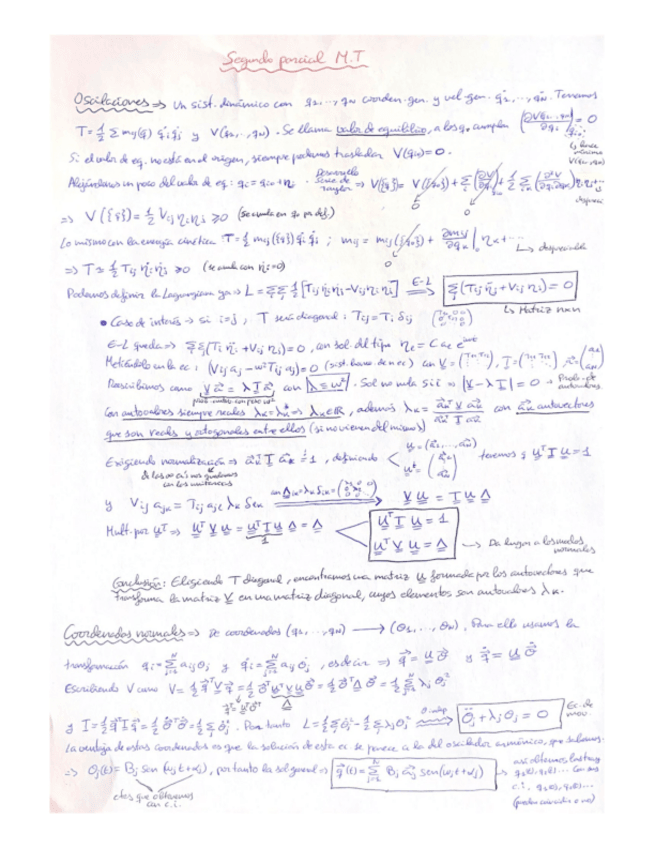 Segundo parcial M.T
Oscilaciones ⇒ Un sist. dinámico con q₁, ..., q_N coorden. gen. y vel. gen. q̇₁, ..., q̇_N. Tenemos
T = ½ Σ m_ij(q) q̇_i q̇_j y V(q₁, ..., q_N). Se llama valor de equilibrio, a los q₀ cumplen (∂V(q₁...q_N)/∂q_i)_{q_i0} = 0
V(q₁, ..., q_N)
Si el valor de eq. no está en el origen, siempre podemos trasladar V(q_i0) = 0.
Alejándonos un poco del valor de eq: q_i = q_i0 + η_i Desarrollo serie de Taylor ⇒ V({q}) = V({q₀}) + Σ(∂V/∂q_i)η_i + ½ Σ(∂²V/∂q_i∂q_j)η_iη_j
⇒ V({q}) = ½ V_ij η_i η_j ≥ 0 (se anula en q₀ por def.)
Lo mismo con la energía cinética T = ½ m_ij({q}) q̇_i q̇_j ; m_ij = m_ij({q₀}) + ∂m_ij/∂q_k|₀ η_k + ... ↳ despreciable
⇒ T ≃ ½ T_ij η̇_i η̇_j ≥ 0 (se anula con η̇_i = 0)
Podemos definir la Lagrangiana ya ⇒ L = Σ_i Σ_j ½ [T_ij η̇_i η̇_j − V_ij η_i η_j] E-L ⇒ Σ_i (T_ij η̈_j + V_ij η_j) = 0
↳ Matriz n×n
• Caso de interés → si i=j, T será diagonal: T_ij = T_i δ_ij
E-L queda ⇒ Σ_i Σ_j (T_i η̈_i + V_ij η_j) = 0, con sol. del tipo η_i = C a_i e^{iωt}
Metiéndolo en la ec: (V_ij a_j − ω² T_ij a_j) = 0
Reescribimos como V a⃗ = λ T a⃗ con λ ≡ ω². Sol no nula si ⇒ |V − λT| = 0 → Prob. de autovalores
Con autovalores siempre reales λ_k = λ_k* ⇒ λ_k ∈ ℝ, además λ_k = a⃗_k^T V a⃗_k / a⃗_k^T T a⃗_k con a⃗_k autovectores
que son reales y ortogonales entre ellos (si no vienen del mismo)
Exigiendo normalización ⇒ a⃗_k^T T a⃗_k = 1, definiendo U = (a⃗₁, ..., a⃗_N) tenemos y U^T T U = 1
y V_ij a_jk = T_ij a_jl λ_k δ_lk con Λ_lk = λ_k δ_lk ⇒ V U = T U Λ
Mult. por U^T ⇒ U^T V U = U^T T U Λ = Λ
U^T T U = 1
U^T V U = Λ → Da lugar a los modos normales
Conclusión: Eligiendo T diagonal, encontramos una matriz U formada por los autovectores que
transforma la matriz V en una matriz diagonal, cuyos elementos son autovalores λ_k.
Coordenadas normales ⇒ De coordenadas (q₁, ..., q_N) → (Θ₁, ..., Θ_N). Para ello usamos la
transformación q_i = Σ_{j=1}^N a_ij Θ_j y q̇_i = Σ_{j=1}^N a_ij Θ̇_j, es decir ⇒ q⃗ = U Θ⃗ y q⃗̇ = U Θ⃗̇
Escribiendo V como V = ½ q⃗^T V q⃗ = ½ Θ⃗^T U^T V U Θ⃗ = ½ Θ⃗^T Λ Θ⃗ = ½ Σ_{j=1}^N λ_j Θ_j²
y T = ½ q⃗̇^T T q⃗̇ = ½ Θ⃗̇^T Θ⃗̇ = ½ Σ Θ̇_j². Por tanto L = ½ Σ Θ̇_j² − ½ Σ λ_j Θ_j² ⇒ Θ̈_j + λ_j Θ_j = 0 Ec. de mov.
La ventaja de estas coordenadas es que la solución de esta ec se parece a la del oscilador armónico, que sabemos
⇒ Θ_j(t) = B_j sen(ω_j t + α_j), por tanto la sol general ⇒ q⃗(t) = Σ_{j=1}^N B_j a⃗_j sen(ω_j t + α_j)
ctes que obtenemos
con c.i.